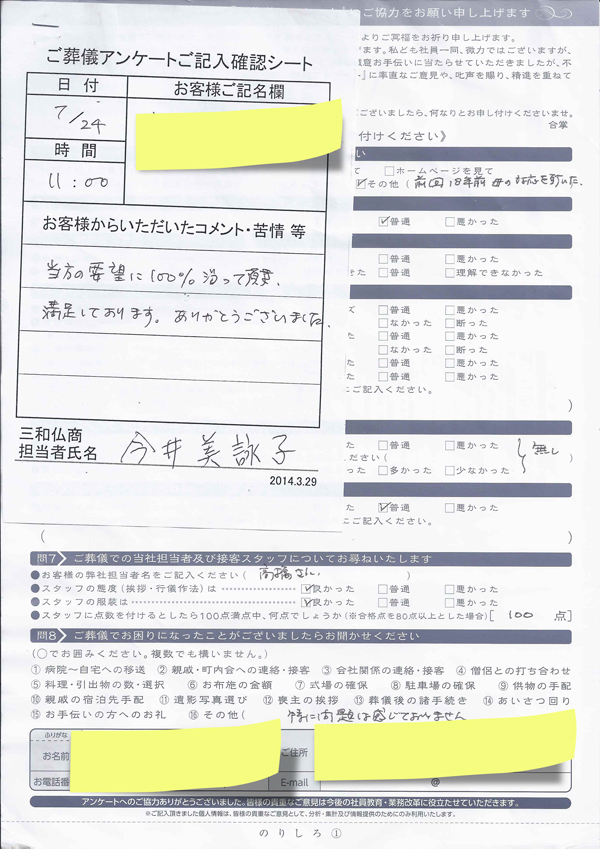 にご協力をお願い申し上げます
よりご冥福をお祈り申し上げます。
ます。私ども社員一同、微力ではございますが、
誠意お手伝いに当たらせていただきましたが、不
に率直なご意見や、叱声を賜り、精進を重ねて
ございましたら、何なりとお申し付けくださいませ。
合掌
付けください》
ご葬儀アンケートご記入確認シート
日付 お客様ご記名欄
7/24
時間
11:00
お客様からいただいたコメント・苦情 等
当方の要望に100%沿って頂き、
満足しております。ありがとうございました。
三和仏商
担当者氏名 今井美詠子
2014.3.29
い
て □ホームページを見て
☑その他(前回18年前 母の対応を頂いた。
☑普通 □悪かった
□普通 □悪かった
せた □普通 □理解できなかった
□普通 □悪かった
た □なかった □断った
た □普通 □悪かった
た □なかった □断った
た □普通 □悪かった
た □普通 □悪かった
にご記入ください。
)
た □普通 □悪かった
ださい( 無し
った □多かった □少なかった
た ☑普通 □悪かった
にご記入ください。
( )
問7 ご葬儀での当社担当者及び接客スタッフについてお尋ねいたします
●お客様の弊社担当者名をご記入ください( 高橋さん )
●スタッフの態度(挨拶・行儀作法)は ☑良かった □普通 □悪かった
●スタッフの服装は ☑良かった □普通 □悪かった
●スタッフに点数を付けるとしたら100点満点中、何点でしょうか(※合格点を80点以上とした場合)[ 100 点]
問8 ご葬儀でお困りになったことがございましたらお聞かせください
(○でお囲みください。複数でも構いません。)
① 病院〜自宅への移送 ② 親戚・町内会への連絡・接客 ③ 会社関係の連絡・接客 ④ 僧侶との打ち合わせ
⑤ 料理・引出物の数・選択 ⑥ お布施の金額 ⑦ 式場の確保 ⑧ 駐車場の確保 ⑨ 供物の手配
⑩ 親戚の宿泊先手配 ⑪ 遺影写真選び ⑫ 喪主の挨拶 ⑬ 葬儀後の諸手続き ⑭ あいさつ回り
⑮ お手伝いの方へのお礼 ⑯ その他( 特に問題は感じておりません
ふりがな
お名前 ご住所
お電話番 E-mail @
アンケートへのご協力ありがとうございました。皆様の貴重なご意見は今後の社員教育・業務改革に役立たせていただきます。
※ご記入頂きました個人情報は、皆様の貴重なご意見として、分析・集計及び情報提供のためにのみ利用いたします。
のりしろ①